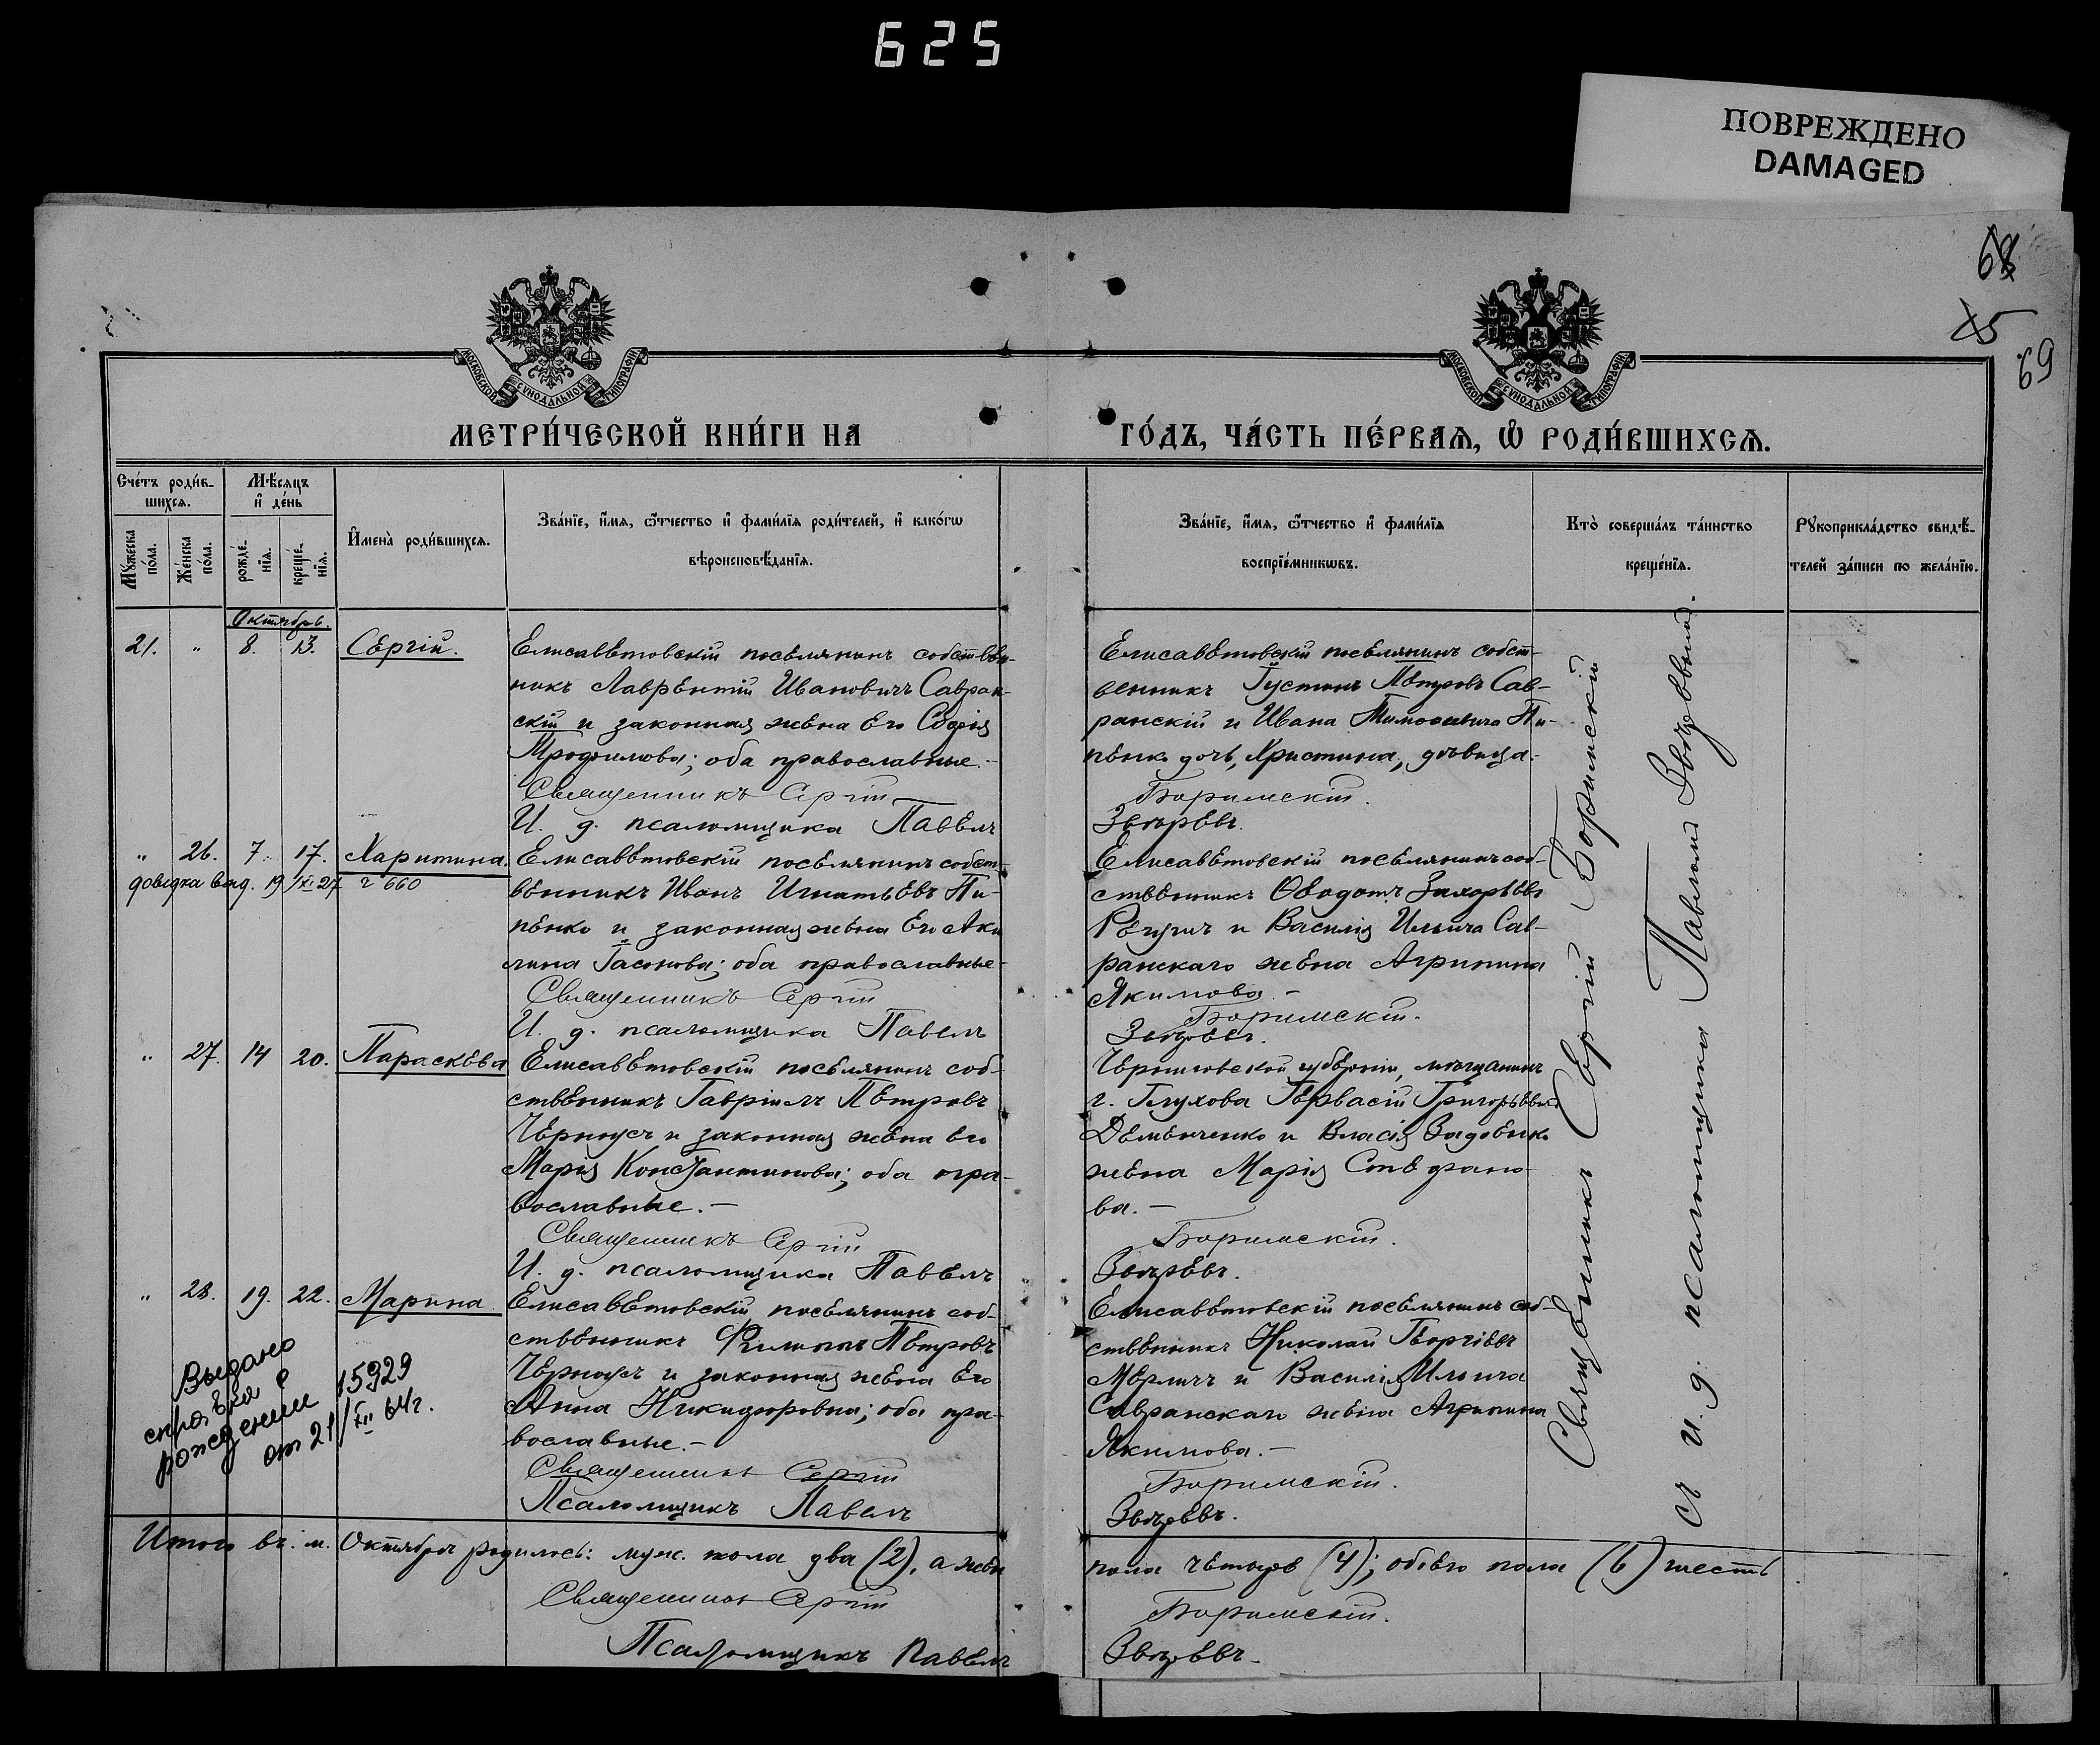 625
ПОВРЕЖДЕНО
DAMAGED
68
45
69
МОСКОВСКОЙ СѴНОДАЛЬНОЙ ТИПОГРАФІИ
МОСКОВСКОЙ СѴНОДАЛЬНОЙ ТИПОГРАФІИ
МЕТРИ́ЧЕСКОЙ КНИ́ГИ НА
ГО́ДЪ, ЧА́СТЬ ПЕ́РВАѦ, Ѡ҆ РОДИ́ВШИХСѦ.
Сче́тъ роди́в-
шихсѧ.
Мꙋжеска по́ла.
Же́нска по́ла.
Мѣ́сѧцъ
и҆ де́нь
рожде́-нїѧ.
креще́-нїѧ.
И҆мена̀ роди́вшихсѧ.
Зва́нїе, и҆́мѧ, ѻ҆́тчество и҆ фами́лїѧ роди́телей, и҆ како́гѡ
вѣроисповѣ́данїѧ.
Зва́нїе, и҆́мѧ, ѻ҆́тчество и҆ фами́лїѧ
воспрїе́мникѡвъ.
Кто̀ соверша́лъ та́инство
креще́нїѧ.
Рꙋкоприкла́дство свидѣ́-
телей за́писи по жела́нїю.
Октябрь.
21. " 8. 13. Сергій.
Елисаветовскій поселянинъ собствен-
никъ Лаврентій Ивановичъ Савран-
скій и законная жена его Софія
Трофимова; оба православные.-
Священникъ Сергій
И. д. псаломщика Павелъ
Елисаветовскій поселянинъ собст-
венникъ Густинъ Петровъ Сав-
ранскій и Ивана Тимофеевича Пи-
пенко дочь, Христина, дѣвица.
Боримскій.
Звѣревъ.
" 26. 7. 17. Харитина.
довідка вид. 19/XI 27 г 660
Елисаветовскій поселянинъ собст-
венникъ Иванъ Игнатьевъ Пи-
пенко и законная жена его Аки
лина Гасонова; оба православные-
Священникъ Сергій
И. д. псаломщика Павелъ
Елисаветовскій поселянинъ соб-
ственникъ Ѳеодотъ Захарьевъ
и Василія Ильича Сав-
ранскаго жена Агрипина
Якимова.-
Боримскій.
Звѣревъ.
" 27. 14 20. Параскева
Елисаветовскій поселянинъ соб-
ственникъ Гавріилъ Петровъ
Черноусъ и законная жена его
Марія Константинова; оба пра-
вославные.-
Священникъ Сергій
И. д. псаломщика Павелъ
Черниговской губерніи, мѣщанинъ
г. Глухова Гервасій Григорьевъ
Деменченко и Власія Задоенко
жена Марія Стефано-
ва.-
Боримскій.
Звѣревъ.
" 28. 19. 22. Марина
Выдано
справка о
рождении 15929
от 21/XII 64г.
Елисаветовскій поселянинъ соб-
ственникъ Филиппъ Петровъ
Черноусъ и законная жена его
Анна Никифоровна; оба пра-
вославные.-
Священникъ Сергій
Псаломщикъ Павелъ
Елисаветовскій поселянинъ соб-
ственникъ Николай Георгіевъ
Мерличъ и Василія Ильича
Савранскаго жена Агрипина
Якимова.-
Боримскій.
Звѣревъ.
Священникъ Сергій Боримскій
съ и. д. псаломщика Павломъ Звѣревымъ.
Итого въ м. Октябрѣ родилось: муж. пола два (2), а жен
пола четыре (4); обоего пола (6) шесть
Священникъ Сергій
Боримскій.
Псаломщикъ Павелъ
Звѣревъ.